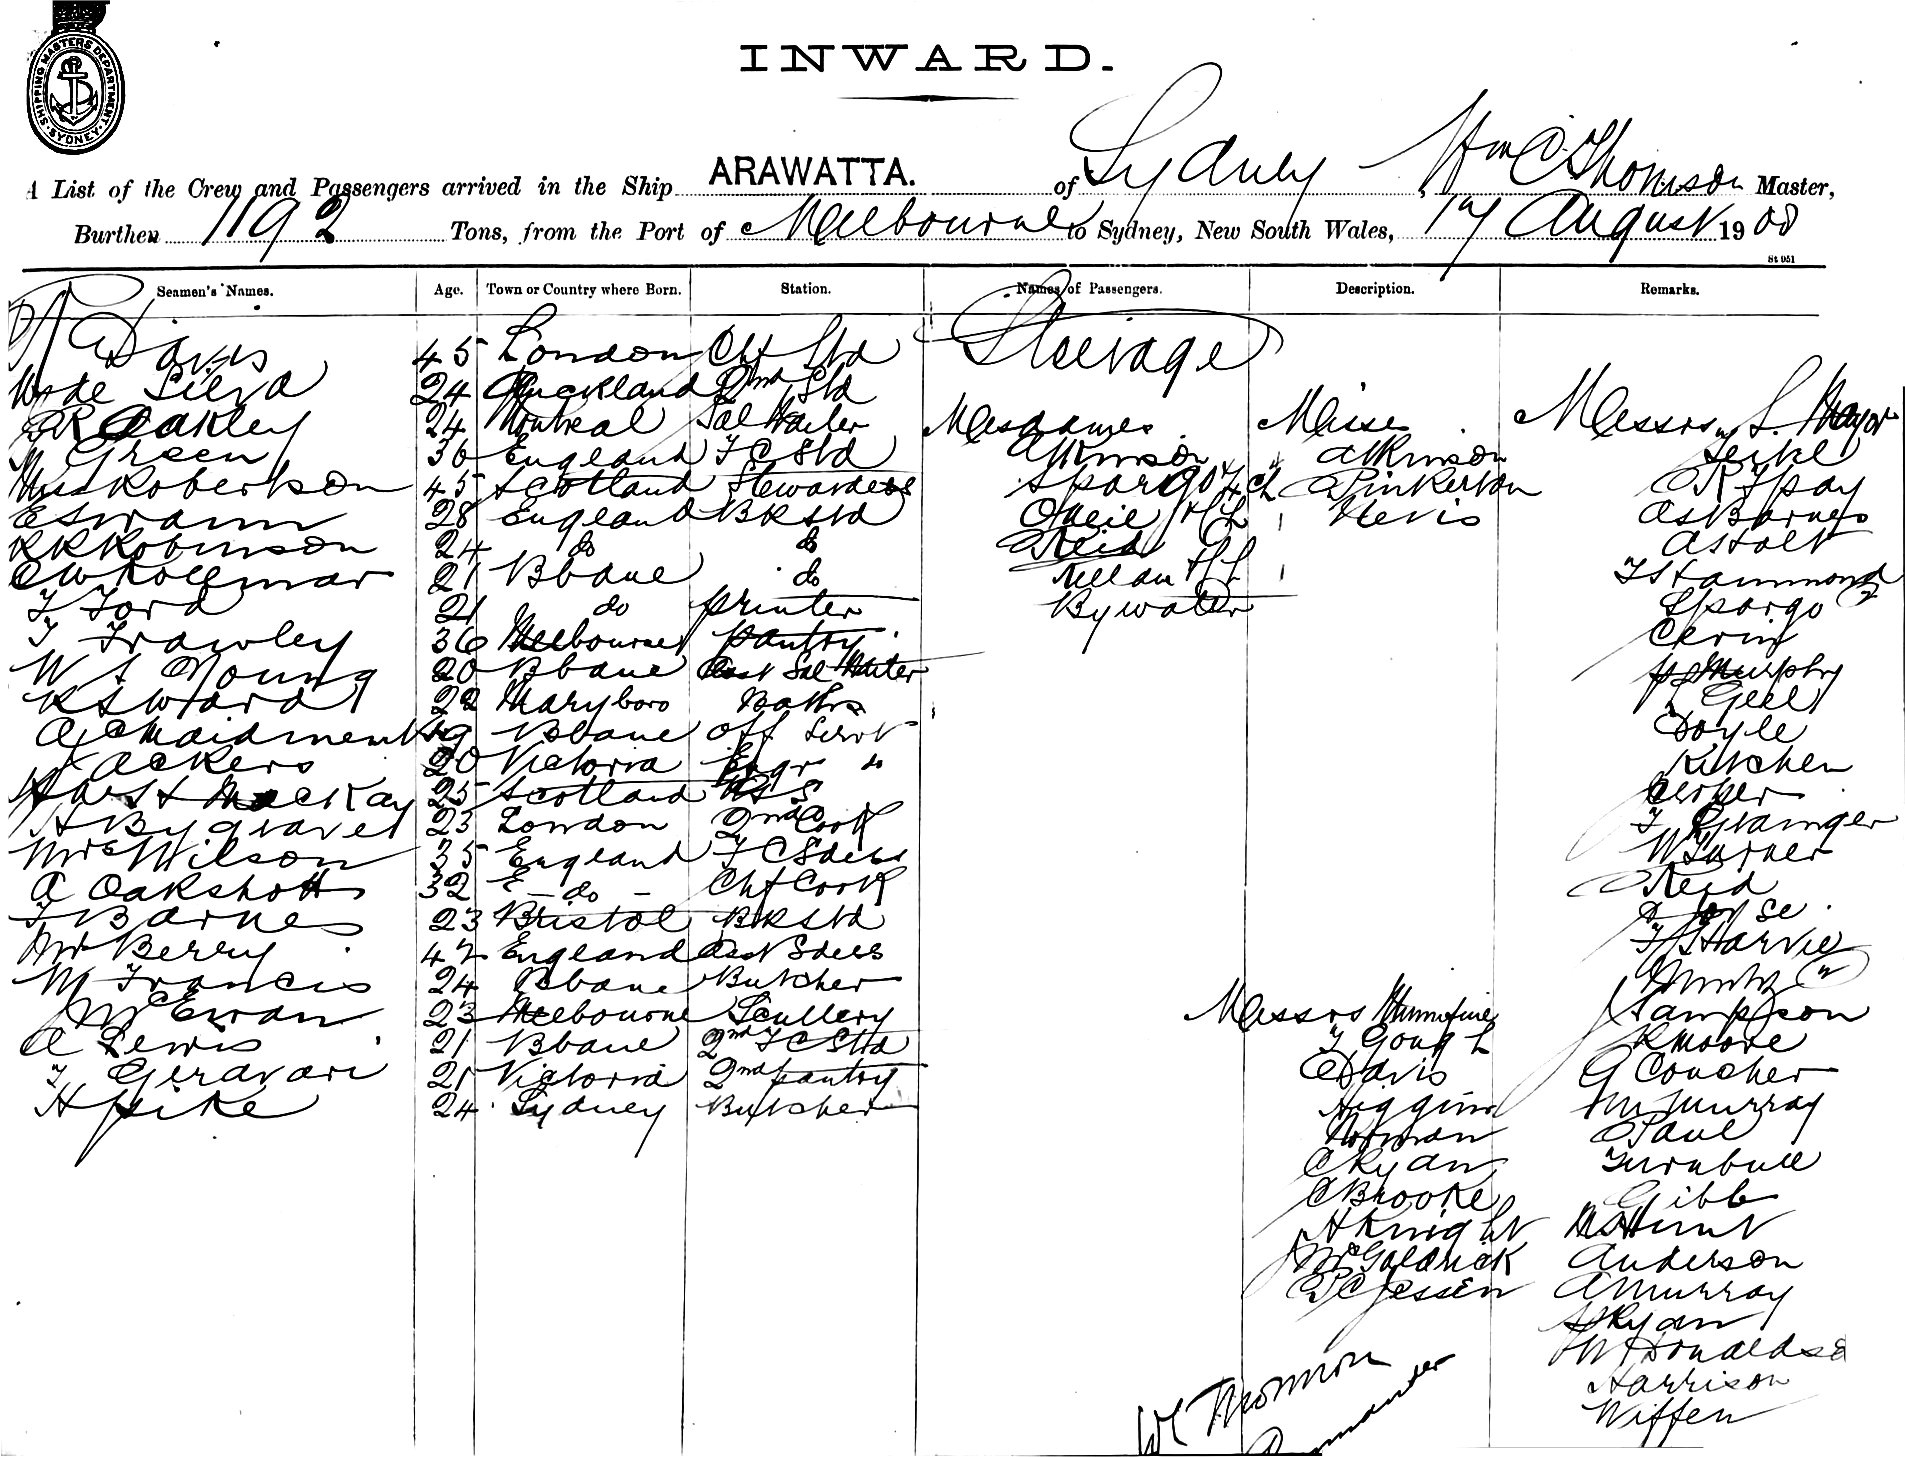 SHIPPING MASTERS DEPARTMENT
SYDNEY
INWARD.
A List of the Crew and Passengers arrived in the Ship ARAWATTA. of Sydney Wm C Thomson Master,
Burthen 1192 Tons, from the Port of Melbourne to Sydney, New South Wales, 17 August 1908
St 051
Seamen's Names. Age. Town or Country where Born. Station. Names of Passengers. Description. Remarks.
Davis 45 London Chf Std
de Silva 24 Auckland 2nd Std
R Oakley 24 Montreal Sal Waiter
Green 36 England F C Std
Mrs Robertson 45 Scotland Stewardess
E Swann 28 England BR Std
R R Robinson 24 do do
C W Kollmar 21 Bbane do
F Ford 21 do printer
F Frawley 36 Melbourne pantry
W S Young 20 Bbane Asst Sal Waiter
R S Ward 22 Maryboro Baths
A J Maidment 19 Bbane Off Servt
Ackers 20 Victoria Engr do
MacKay 25 Scotland
H Bygrave 23 London 2nd Cook
Mrs Wilson 35 England F C Sdess
A Oakshott 32 E - do - Chf Cook
F Barnes 23 Bristol BR Std
Mr Berry 42 England Asst Sdess
M Francis 24 Bbane Butcher
J McEwan 23 Melbourne Scullery
A Lewis 21 Bbane 2nd F C Std
F Geravari 21 Victoria 2nd pantry
H Pike 24 Sydney Butcher
Steerage
Mesdames
Atkinson
Spargo & 4 ch
Oneil
Reid
Bywater
Misses
Atkinson
Pinkerton
Nevis
Messrs
F Gough
Davis
Higgins
Norman
C Ryan
C Brooke
H Knight
McGoldrick
P C Jessen
Messrs S. Mayor
R Spay
A S Barnes
A S Holt
F S Hammond
Spargo 2
Cerin
Murphy
Geel
Doyle
Kitchen
F Grainger
W Turner
Reid
F Harvie
Sampson
R Moore
G Coucher
M Murray
Paul
Turnbull
Gibb
Hunt
Anderson
A Murray
Ryan
Harrison
Wiffen
W C Thomson
Commander